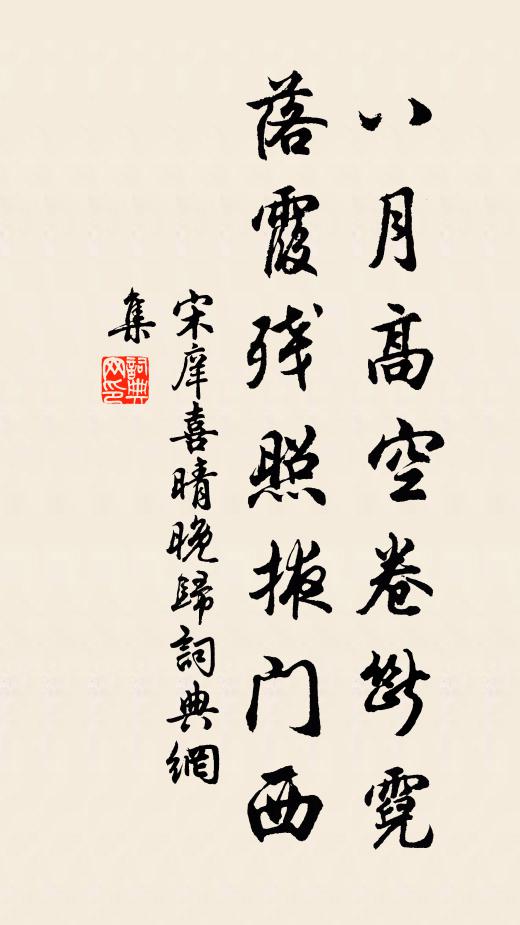 八月高空卷断霓
落霞残照掖门西
宋庠喜晴晚歸詞典網
集
詞典网印